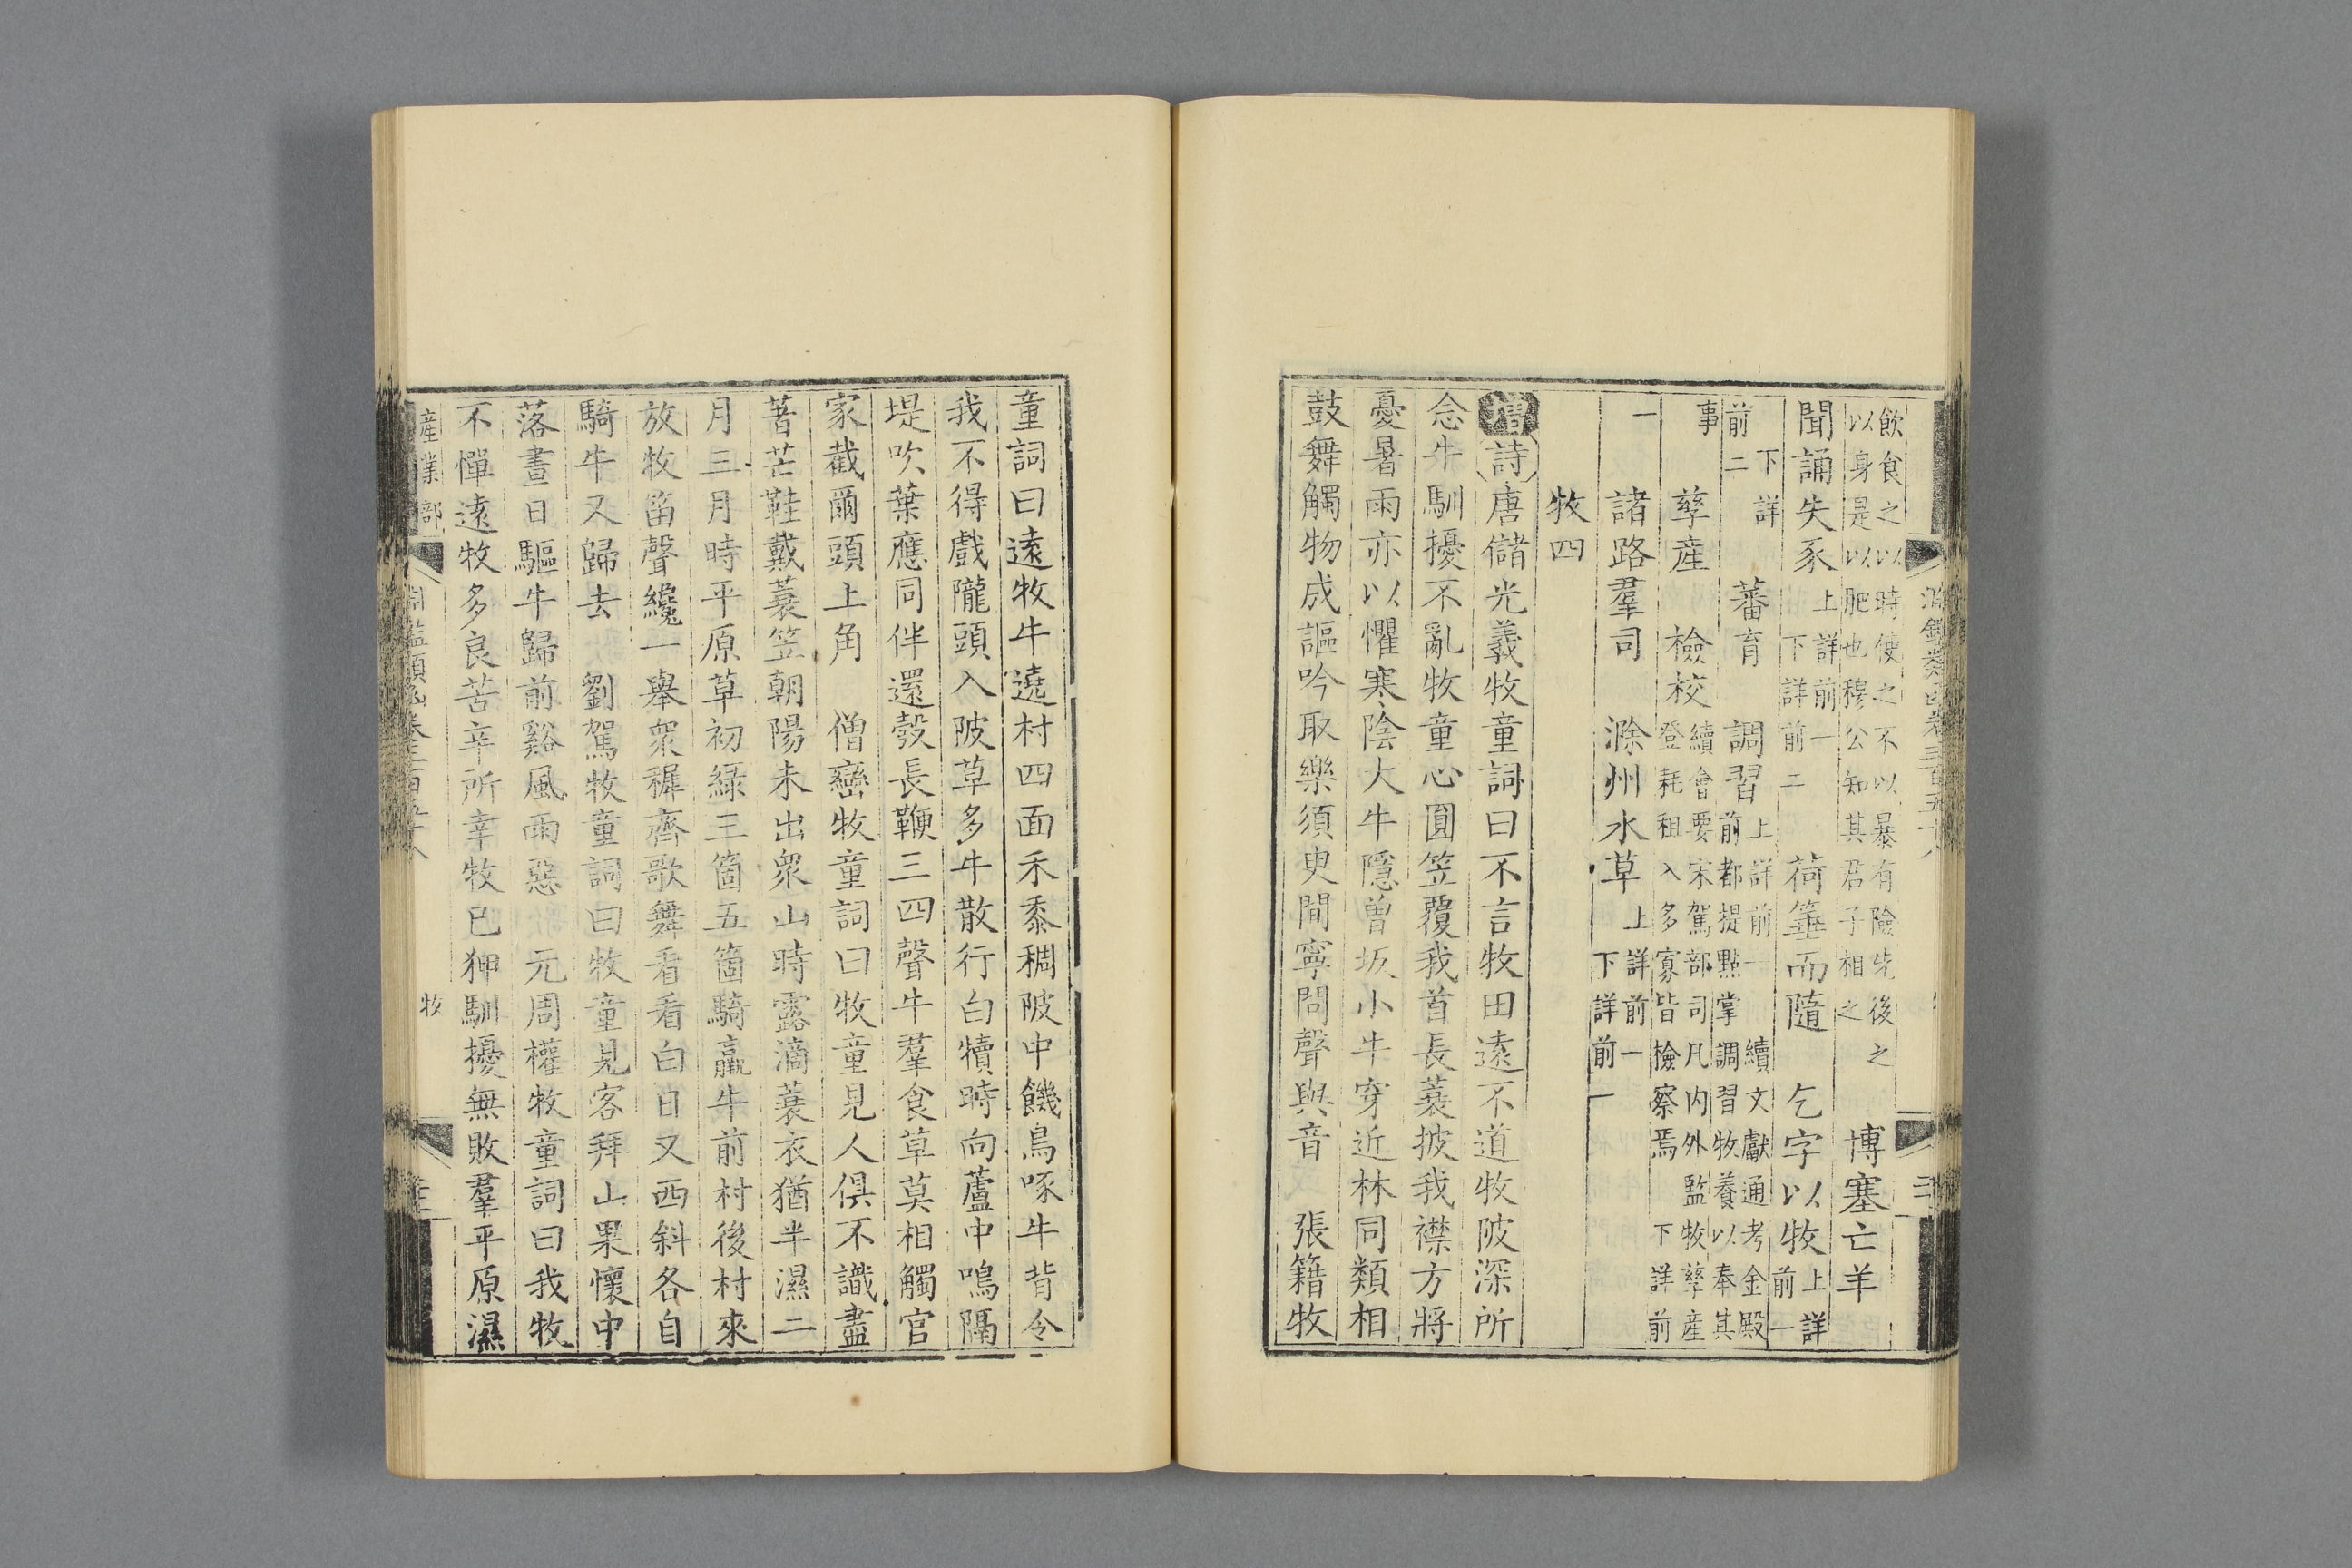 飲食之以時使之不以暴有險先後之
以身是以肥也穆公知其君子相之 博塞亡羊
聞誦失豕 上詳前一 下詳前二 荷箠而隨 乞字以牧 上詳前一
下詳前二 蕃育 調習 上詳前一 續文獻通考金殿前都提點掌調習牧養以奉其
事 孳産 檢校 續會要宋駕部司凡内外監牧孳産登耗租入多寡皆檢察焉 下詳前
一 諸路羣司 滁州水草 上詳前一 下詳前一
牧四
增詩唐儲光義牧童詞曰不言牧田遠不道牧陂深所
念牛馴擾不亂牧童心圓笠覆我首長蓑披我襟方將
憂暑雨亦以懼寒陰大牛隱曾坂小牛穿近林同類相
鼓舞觸物成謳吟取樂須臾間寧問聲與音 張籍牧
童詞曰遠牧牛遶村四面禾黍稠陂中饑鳥啄牛背令
我不得戲隴頭入陂草多牛散行白犢時向蘆中鳴隔
堤吹葉應同伴還彀長鞭三四聲牛羣食草莫相觸官
家截爾頭上角 僧巒牧童詞曰牧童見人俱不識盡
著芒鞋戴蓑笠朝陽未出衆山時露滴蓑衣猶半濕二
月三月時平原草初緑三箇五箇騎羸牛前村後村來
放牧笛聲纔一舉衆穉齊歌舞看看白日又西斜各自
騎牛又歸去 劉駕牧童詞曰牧童見客拜山果懷中
落晝日驅牛歸前谿風雨惡 元周權牧童詞曰我牧
不憚遠牧多良苦辛所幸牧已狎馴擾無敗羣平原濕
産業部
牧